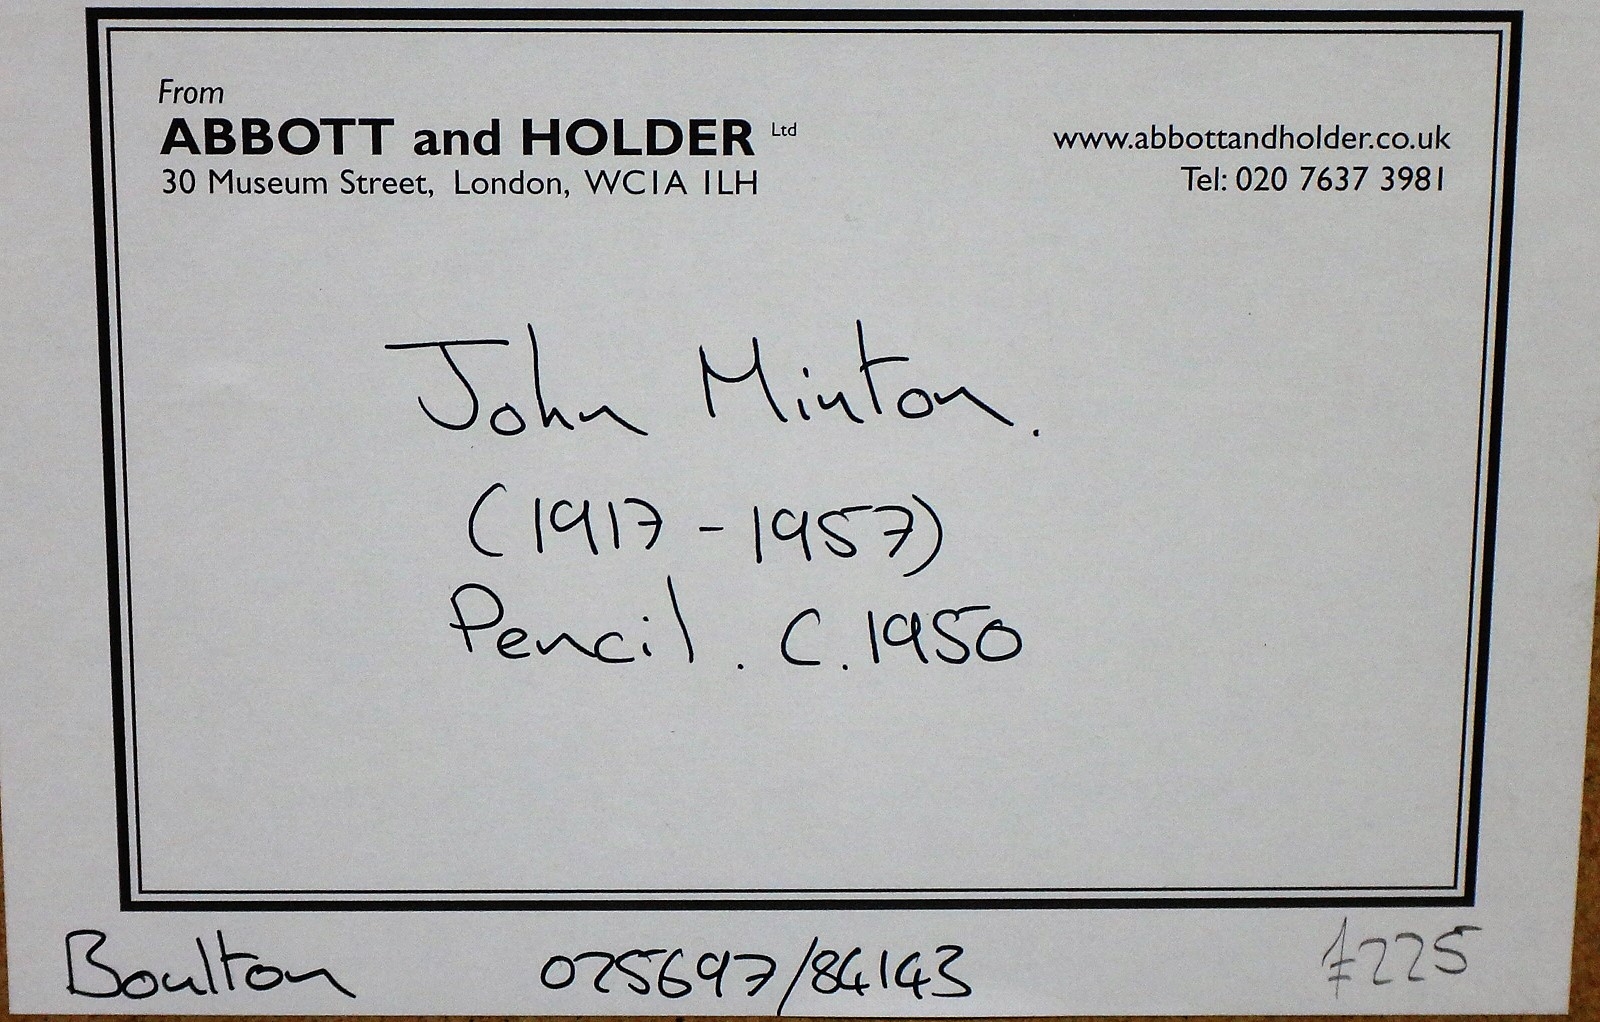 From
ABBOTT and HOLDER Ltd
30 Museum Street, London, WC1A 1LH
www.abbottandholder.co.uk
Tel: 020 7637 3981
John Minton.
(1917 - 1957)
Pencil. C.1950
Boulton 025697/84143 £225